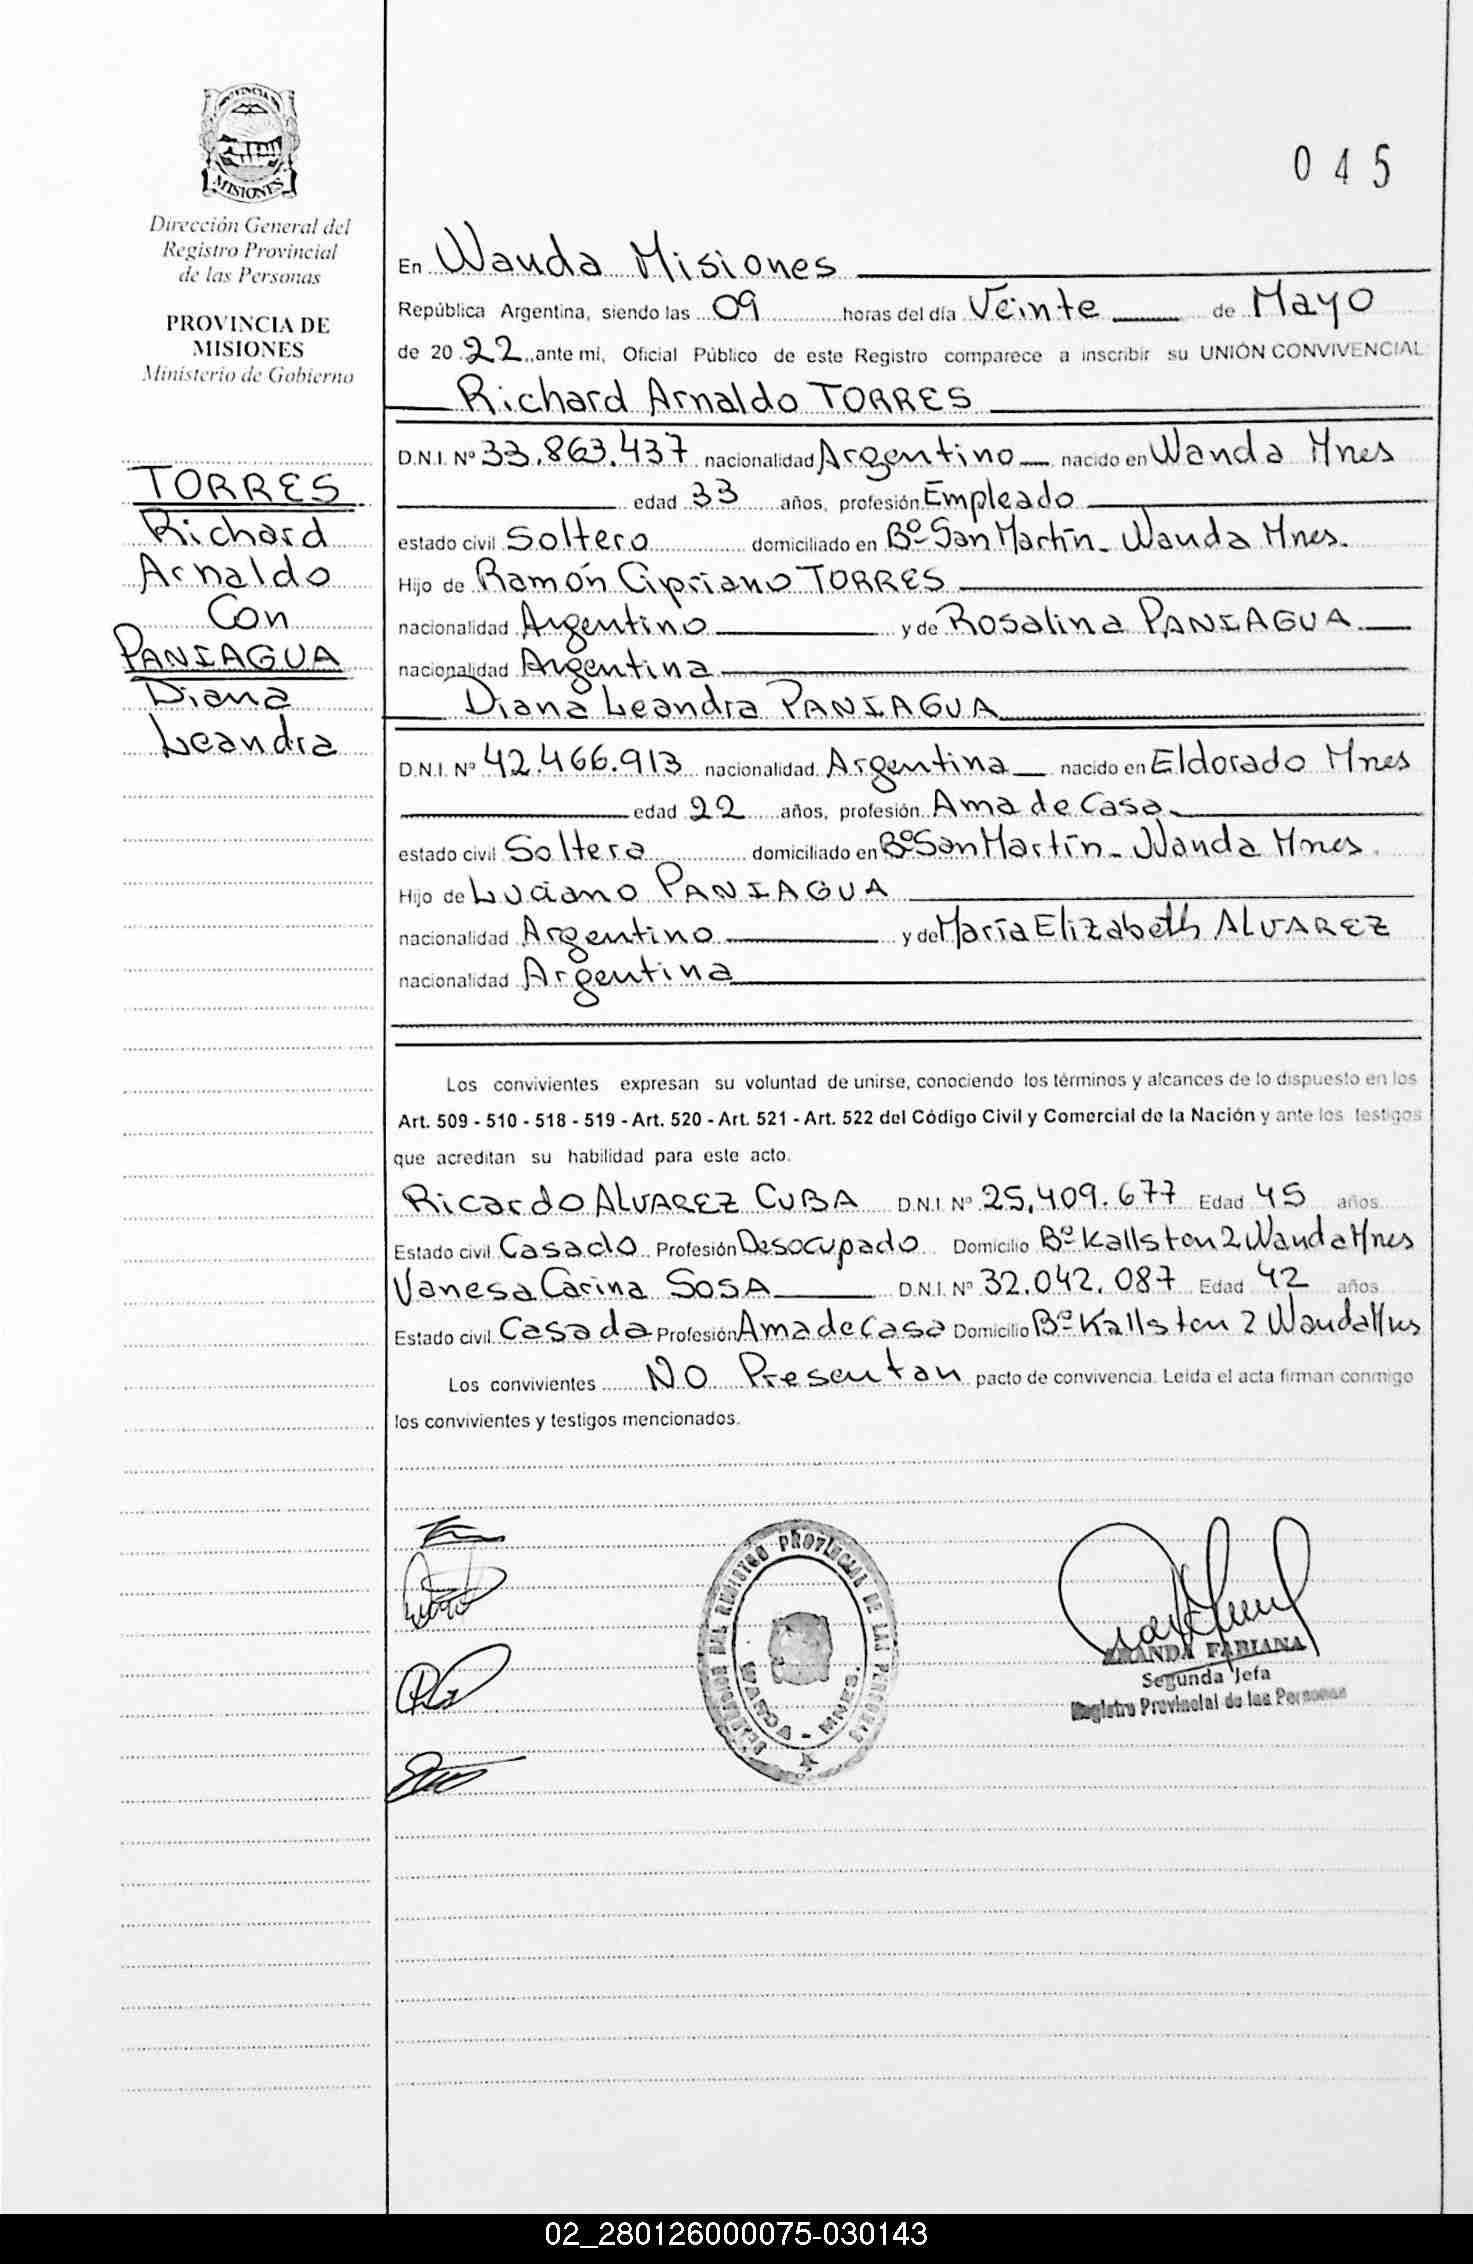 PROVINCIA DE
MISIONES
Dirección General del
Registro Provincial
de las Personas
PROVINCIA DE
MISIONES
Ministerio de Gobierno
TORRES
Richard
Arnaldo
Con
PANIAGUA
Diana
Leandra
045
En Wanda Misiones
República Argentina, siendo las 09 horas del día Veinte de Mayo
de 2022, ante mi, Oficial Público de este Registro comparece a inscribir su UNIÓN CONVIVENCIAL
Richard Arnaldo TORRES
D.N.I. Nº 33.863.437 nacionalidad Argentino nacido en Wanda Mnes
edad 33 años, profesión Empleado
estado civil Soltero domiciliado en Bº San Martín - Wanda Mnes.
Hijo de Ramón Cipriano TORRES
nacionalidad Argentino y de Rosalina PANIAGUA
nacionalidad Argentina
Diana Leandra PANIAGUA
D.N.I. Nº 42.466.913 nacionalidad Argentina nacido en Eldorado Mnes
edad 22 años, profesión Ama de Casa
estado civil Soltera domiciliado en Bº San Martín - Wanda Mnes.
Hijo de Luciano PANIAGUA
nacionalidad Argentino y de María Elizabeth ALVAREZ
nacionalidad Argentina
Los convivientes expresan su voluntad de unirse, conociendo los términos y alcances de lo dispuesto en los
Art. 509 - 510 - 518 - 519 - Art. 520 - Art. 521 - Art. 522 del Código Civil y Comercial de la Nación y ante los testigos
que acreditan su habilidad para este acto.
Ricardo ALVAREZ CUBA D.N.I. Nº 25.409.677 Edad 45 años
Estado civil Casado Profesión Desocupado Domicilio Bº Kallsten 2 Wanda Mnes
Vanesa Carina SOSA D.N.I. Nº 32.042.087 Edad 42 años
Estado civil Casada Profesión Ama de Casa Domicilio Bº Kallsten 2 Wanda Mnes
Los convivientes NO Presentan pacto de convivencia. Leída el acta firman conmigo
los convivientes y testigos mencionados.
DEL REGISTRO PROVINCIAL DE LAS PERSONAS
WANDA - MNES.
FABIANA
Segunda Jefa
Registro Provincial de las Personas
02_280126000075-030143